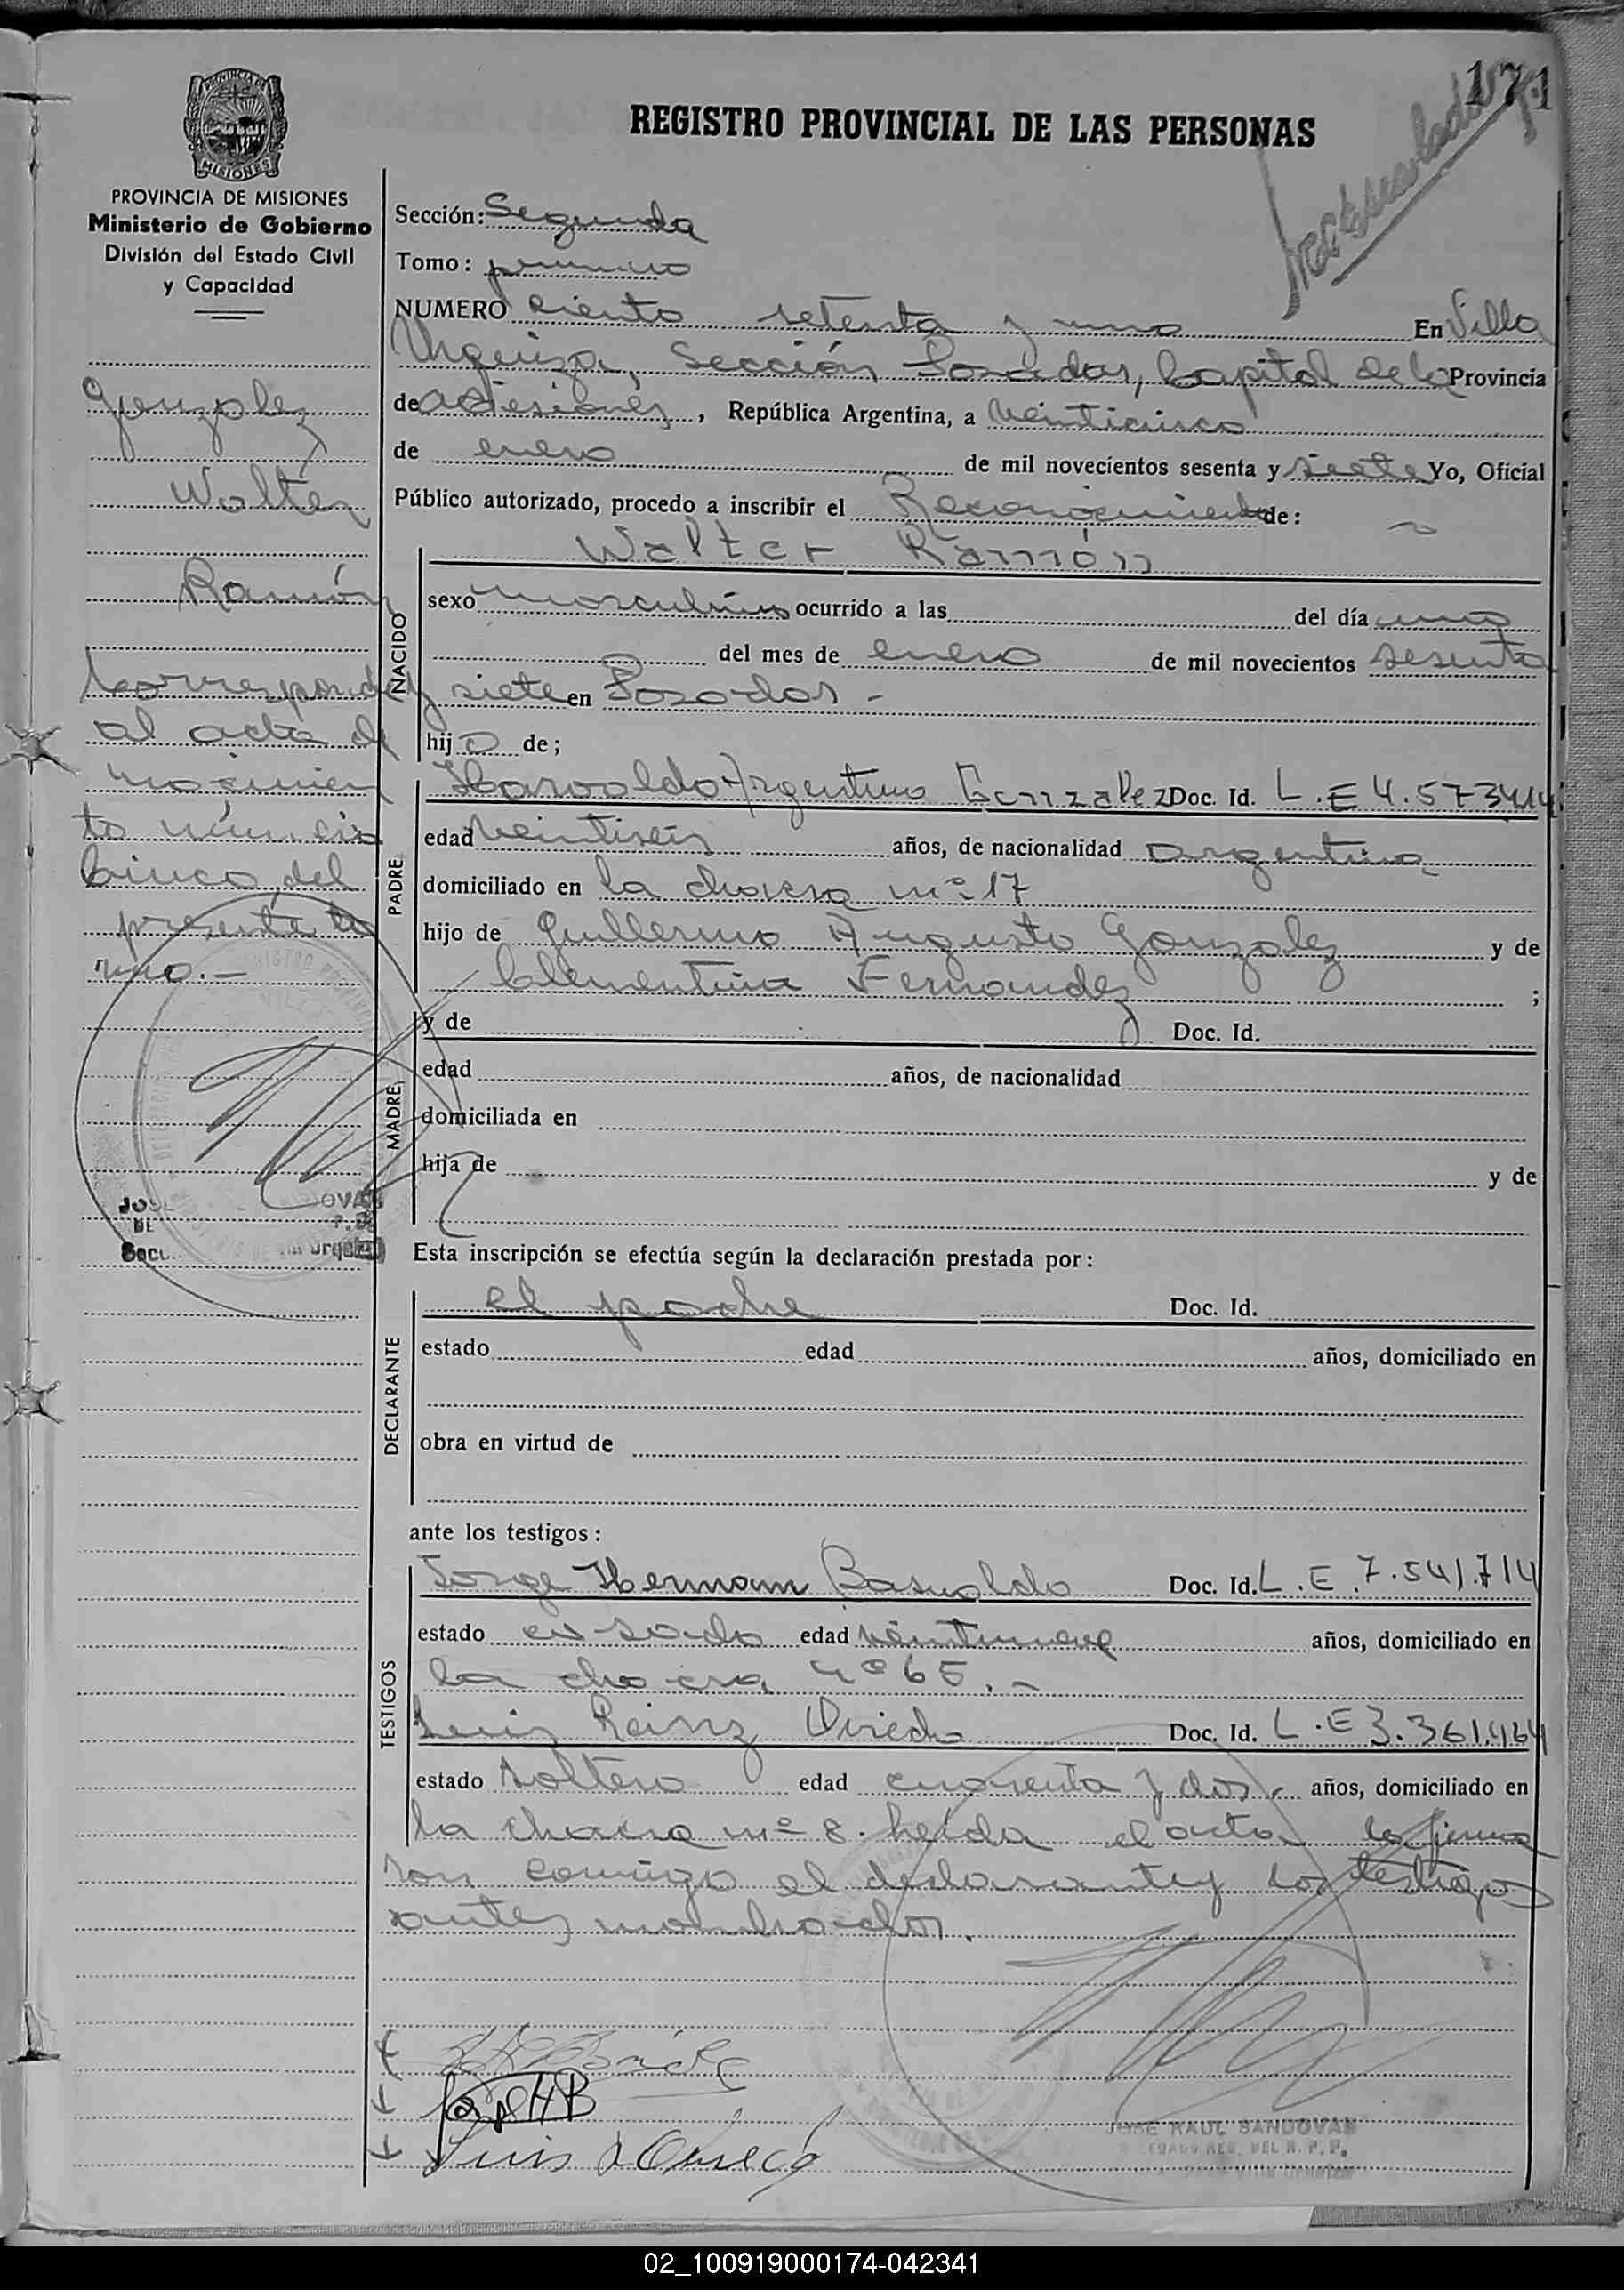 171
REGISTRO PROVINCIAL DE LAS PERSONAS
PROVINCIA DE MISIONES
MISIONES
PROVINCIA DE MISIONES
Ministerio de Gobierno
División del Estado Civil
y Capacidad
Gonzalez
Walter
Ramón
Corresponde
al acta de
nacimien
to número
cinco del
presente to
mo.-
Sección: Segunda
Tomo: primero
NUMERO ciento setenta y uno En Villa
Urquiza, Sección Posadas, Capital de la Provincia
de Misiones, República Argentina, a veinticinco
de enero de mil novecientos sesenta y siete Yo, Oficial
Público autorizado, procedo a inscribir el Reconocimiento de:
NACIDO
Walter Ramón
sexo masculino ocurrido a las del día uno
del mes de enero de mil novecientos sesenta
y siete en Posadas -
hijo de;
PADRE
Haroldo Argentino Gonzalez Doc. Id. L.E 4.573414
edad veintiseis años, de nacionalidad argentina
domiciliado en la chacra nº 17
hijo de Guillermo Augusto Gonzalez y de
Clementina Fernandez ;
MADRE
y de Doc. Id.
edad años, de nacionalidad
domiciliada en
hija de y de
Esta inscripción se efectúa según la declaración prestada por:
DECLARANTE
el padre Doc. Id.
estado edad años, domiciliado en
obra en virtud de
ante los testigos:
TESTIGOS
Jorge Hermann Basualdo Doc. Id. L.E.7.541.714
estado casado edad veintinueve años, domiciliado en
la chacra nº 65.-
Luis Oviedo Doc. Id. L.E 3.361.464
estado soltero edad cuarenta y dos años, domiciliado en
la chacra nº 8. Leída el acta la firma
ron conmigo el declarante y los testigos
antes nombrados.
JOSE RAUL SANDOVAL
DEL R. P. P.
02_100919000174-042341